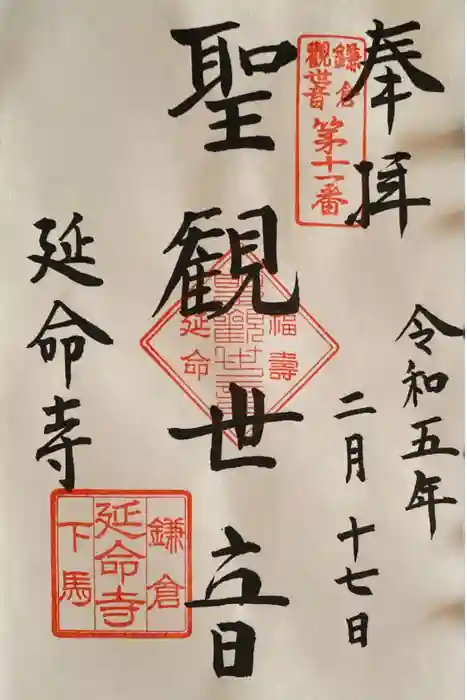 奉拝
鎌倉
觀世音
第十一番
令和五年
二月十七日
聖観世音
福壽
聖觀世音
延命
延命寺
鎌倉
延命寺
下馬